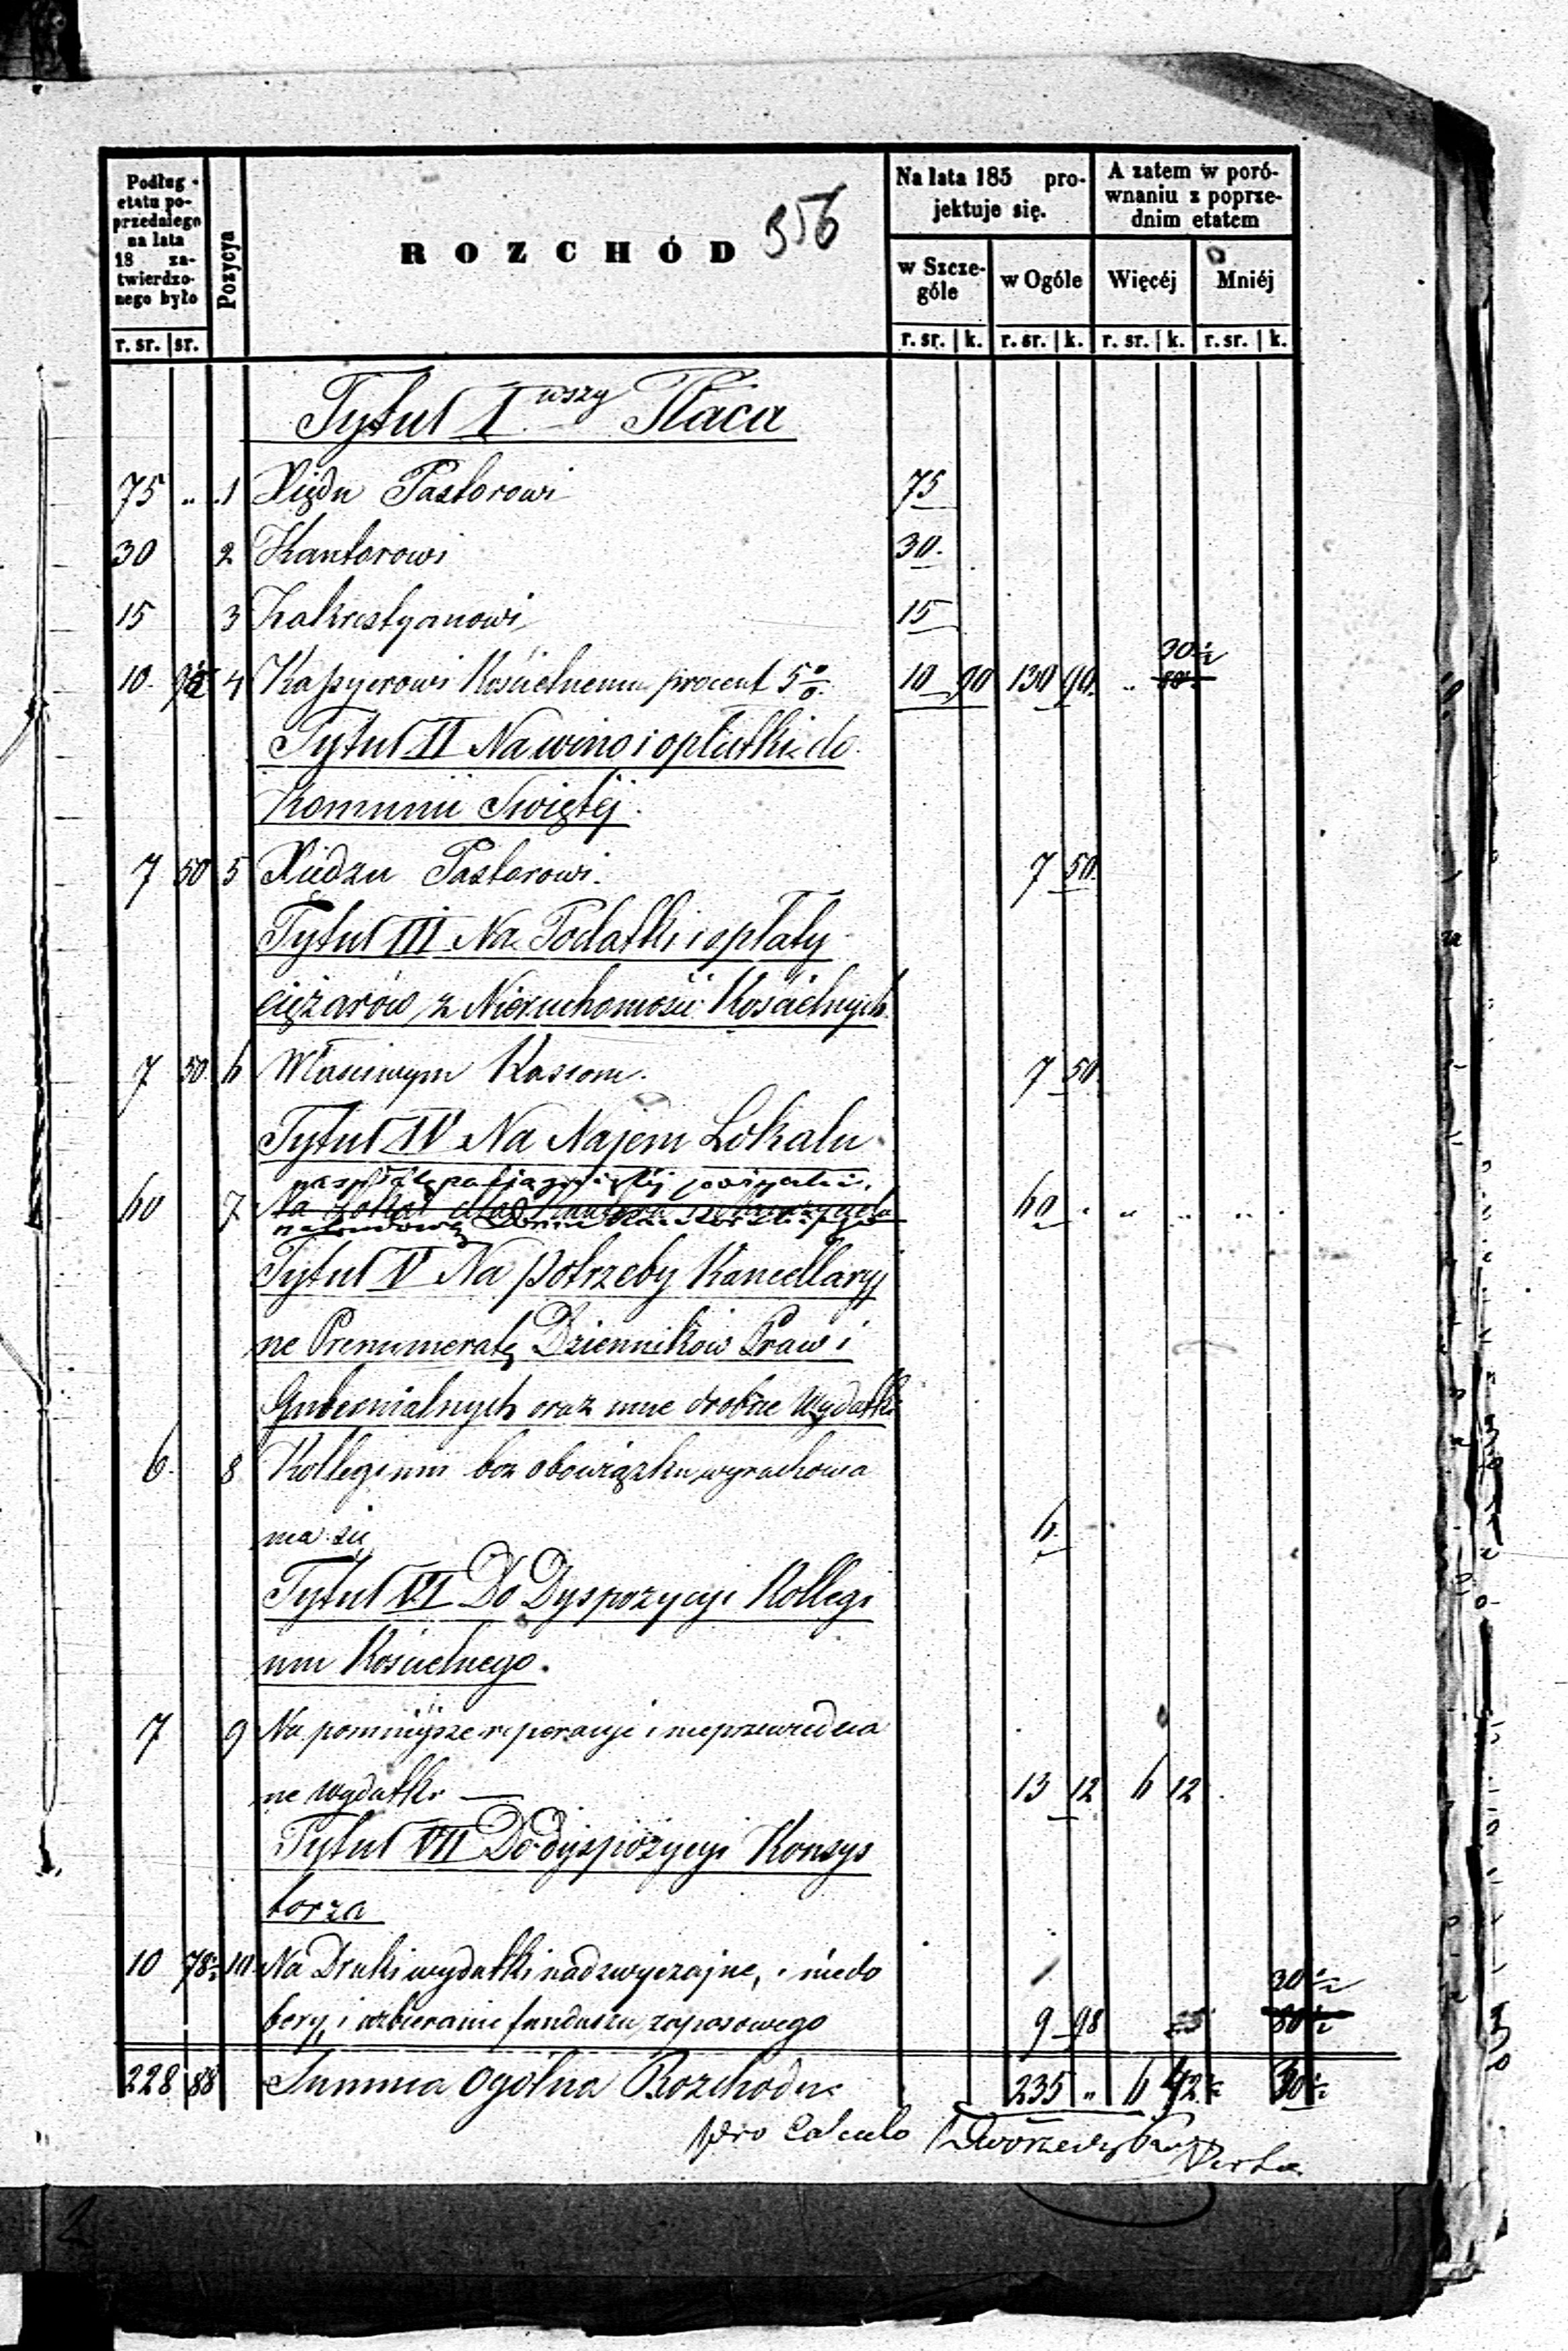 Podług etatu poprzedniego na lata 18 zatwierdzonego było
Pozycya
ROZCHÓD 356
Na lata 185 projektuje się.
A zatem w porównaniu z poprzednim etatem
w Szczególe
w Ogóle
Więcéj
Mniéj
r. sr. sr.
r. sr. k. r. sr. k. r. sr. k. r. sr. k.
Tytuł I wszy Płaca
75 " 1 Xiędzu Pastorowi 75
30 2 Kantorowi 30.
15 3 Zakrystyanowi 15
10 4 Kassyerowi Kościelnemu procent 5 0/0 10 90 130 90 " 30½
Tytuł II Na wino i opłatki do
Komunii Swiętéj
7 50 5 Xiedzu Pastorowi. 7 50
Tytuł III Na Podatki i opłaty
ciężarów z Nieruchomości Kościelnych
7 50 6 Właściwym Kassom. 7 50
Tytuł IV Na Najem Lokalu
60 7 60
Tytuł V Na potrzeby Kancellaryj
ne Prenumeratę Dzienników Praw i
Gubernialnych oraz inne drobne Wydatki
6. 8 Kollegium bez obowiązku wyrachowa
nia się 6.
Tytuł VI Do Dyspozycyi Kollegi
um Kościelnego.
7 9 Na pomniejsze reperacyje i nieprzewidzia
ne wydatki — 13 12 6 12
Tytuł VII Do dyspozycyi Konsys
torza
10 78½ 10 Na Druki wydatki nadzwyczajne, i niedo
bory, i uzbieranie funduszu zapasowego 9 98 30½
228 88 Summa Ogólna Rozchodu 235 " 6 42½ 30½
pro Calculo